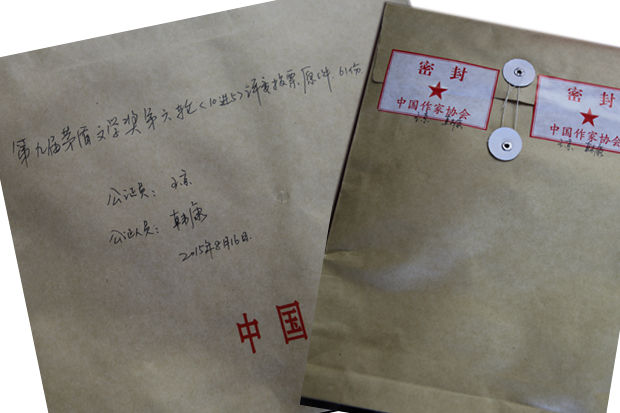 第九届茅盾文学奖第六轮<10进5>评委投票原件 61份
公证员: 王京
公证人员: 韩康
2015年8月16日.
中国
密封
中国作家协会
王京 韩康
密封
中国作家协会
王京 韩康